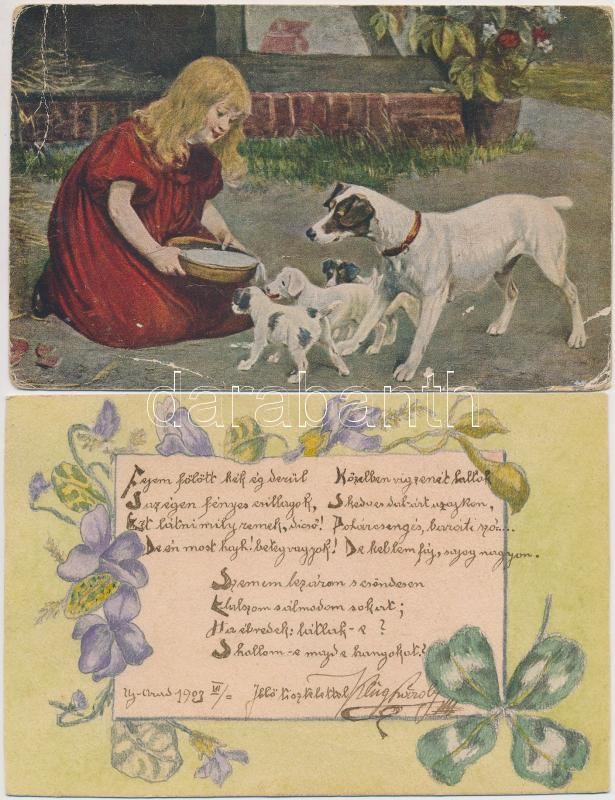 darabanth
Fejem fölött kék ég derül
S az égen fényes csillagok,
Ezt látni mily remek, dicső!
De én most hajh! beteg vagyok!
Közelben víg zenét hallok
S kedves dal-árt
Pohárcsengés, baráti szó....
De keblem fáj, sajog nagyon.
Szemem lezárom s csöndesen
Elalszom s álmodom sokat;
Ha ébredek: látlak-e?
S hallom-e majd e hangokat?
Uj-Arad 1903 VII/ Illő tisztelettel Klug